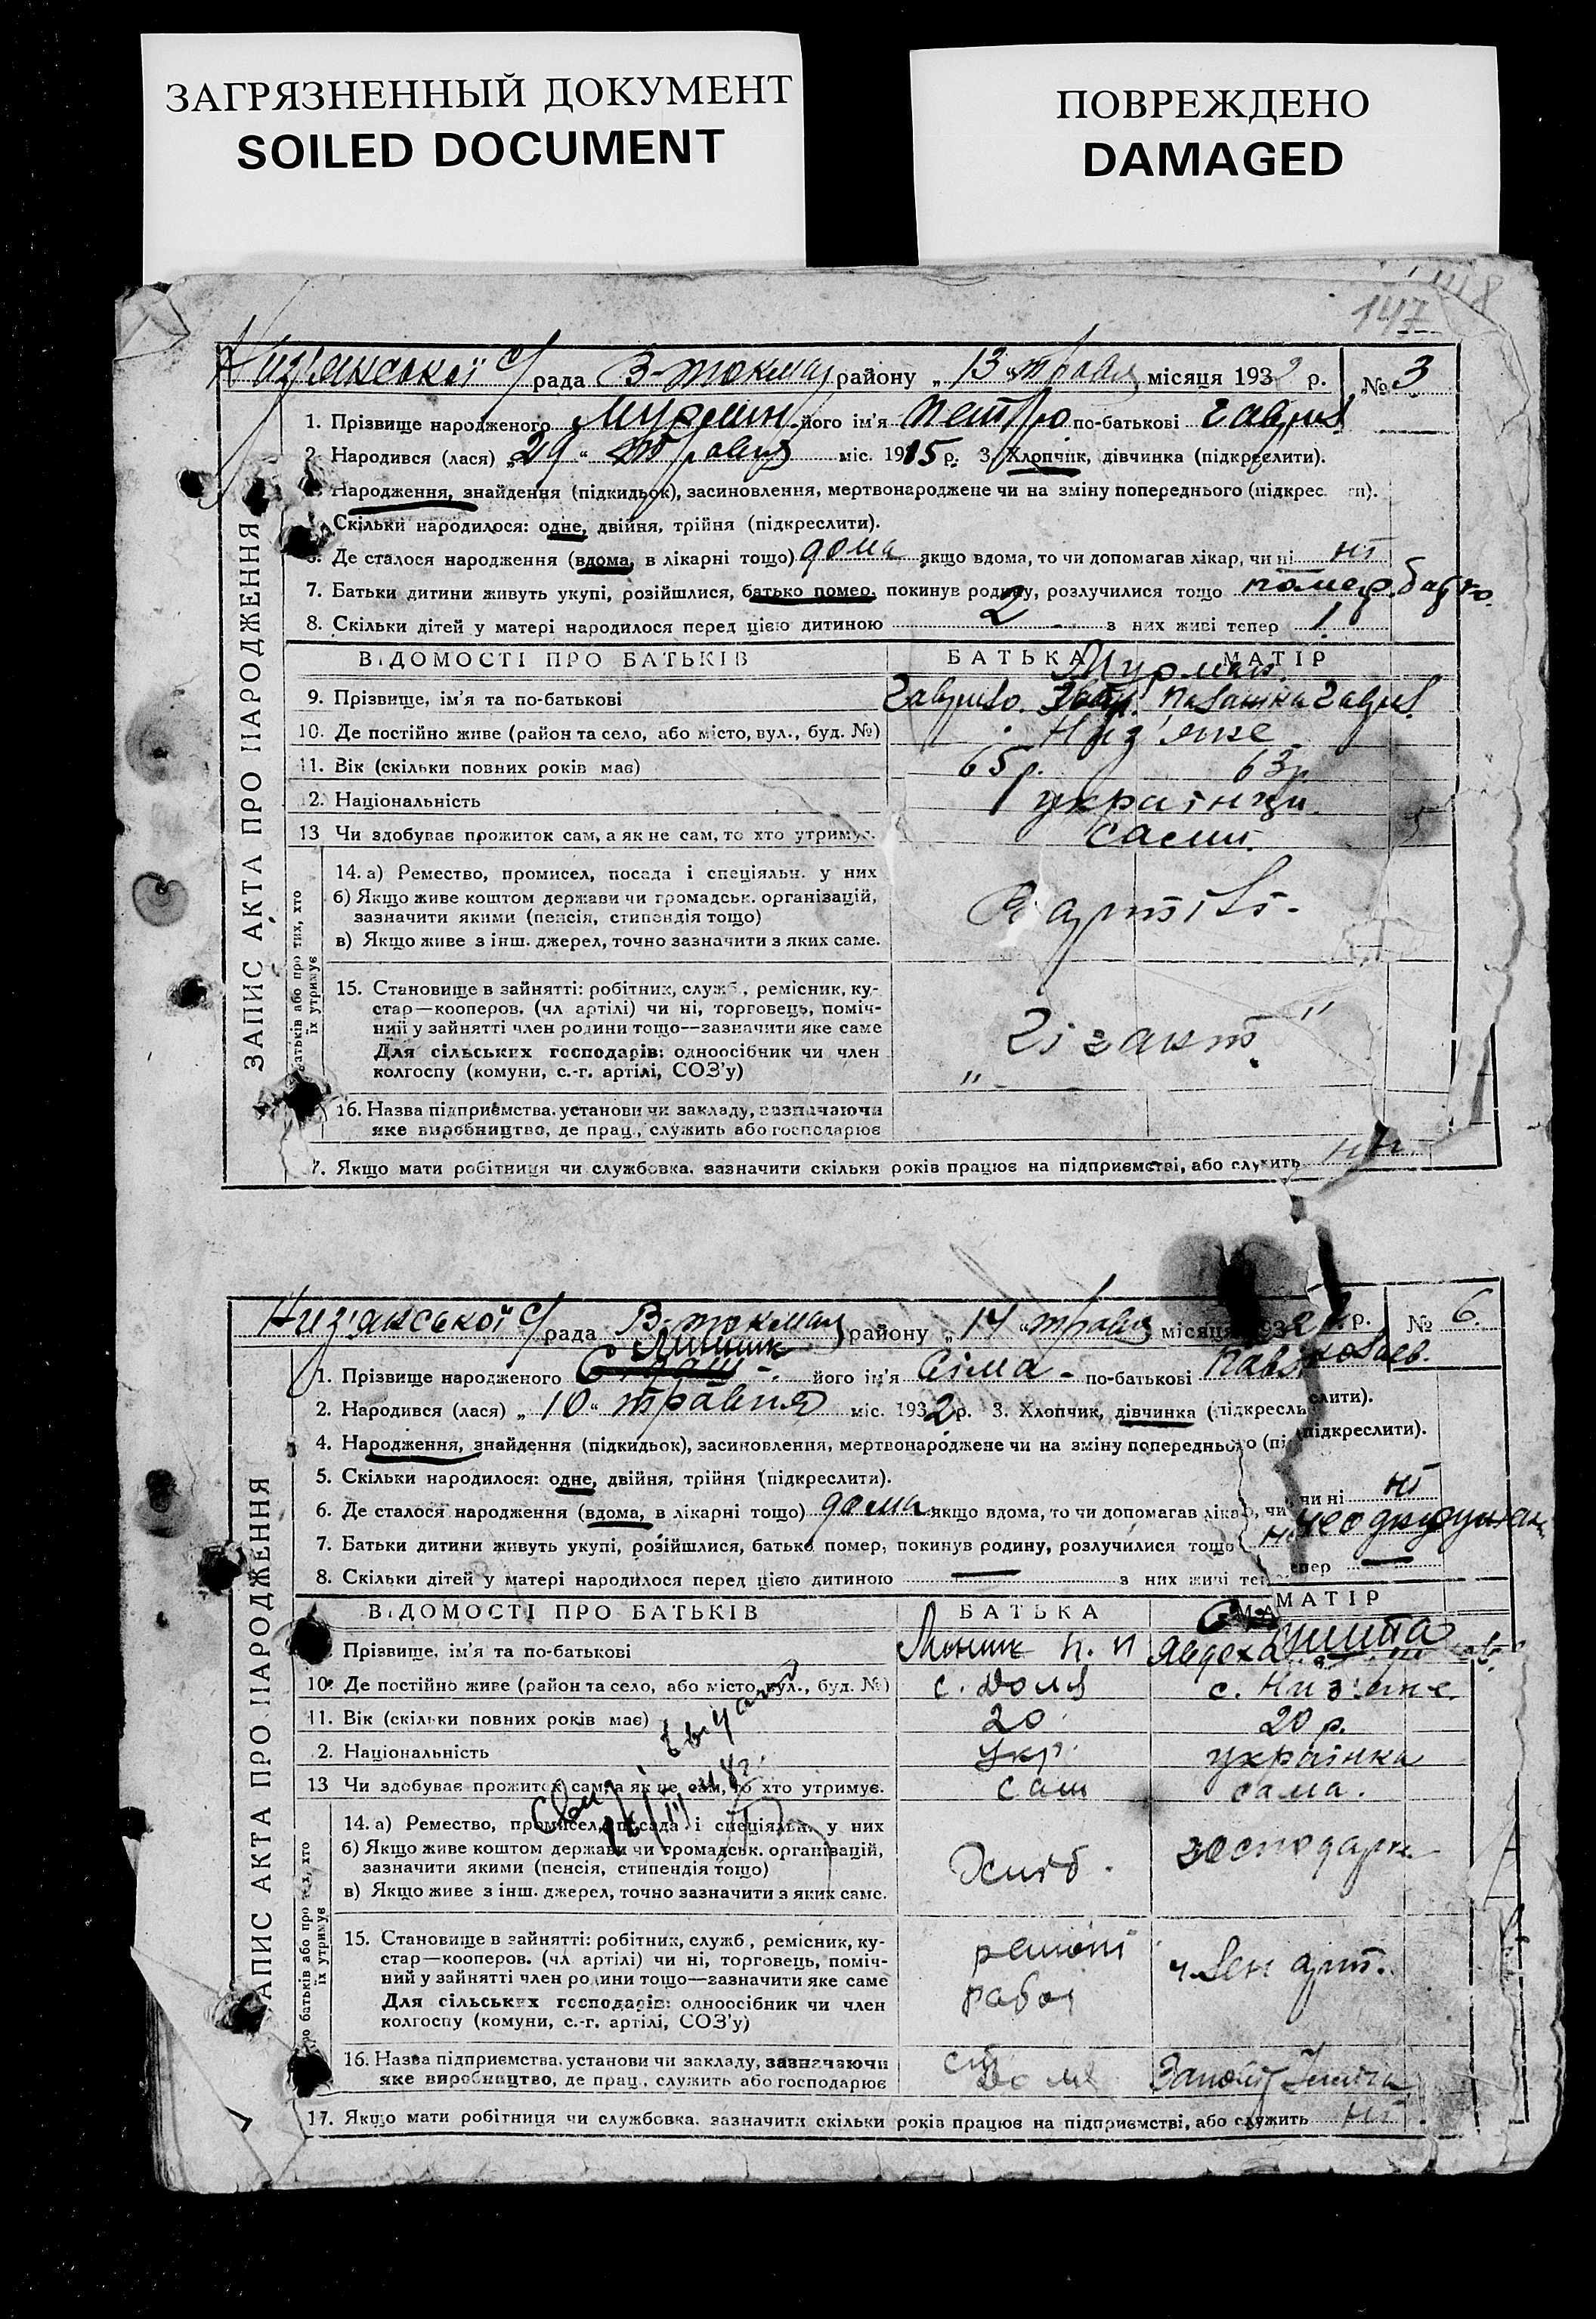 ЗАГРЯЗНЕННЫЙ ДОКУМЕНТ
SOILED DOCUMENT
ПОВРЕЖДЕНО
DAMAGED
147
ЗАПИС АКТА ПРО НАРОДЖЕННЯ
Низ'янської с/рада В-токмак району „13" травня місяця 1932 р. № 3
1. Прізвище народженого Мурман його ім'я Петро по-батькові Гаврил
2. Народився (лася) „29" травня міс. 1915 р. 3. Хлопчик, дівчинка (підкреслити).
Народження, знайдення (підкидьок), засиновлення, мертвонароджене чи на зміну попереднього (підкрес ти).
Скільки народилося: одне, двійня, трійня (підкреслити).
6. Де сталося народження (вдома, в лікарні тощо) дома якщо вдома, то чи допомагав лікар, чи ні ні
7. Батьки дитини живуть укупі, розійшлися, батько помер, покинув родину, розлучилися тощо помер батько.
8. Скільки дітей у матері народилося перед цією дитиною 2 з них живі тепер 1
ВІДОМОСТІ ПРО БАТЬКІВ БАТЬКА МАТІР
Мурман
9. Прізвище, ім'я та по-батькові Гаврило Палажка Гаврил.
10. Де постійно живе (район та село, або місто, вул., буд. №) Низ'яне
11. Вік (скільки повних років має) 65 р. 63 р.
2. Національність українци.
13 Чи здобуває прожиток сам, а як не сам, то хто утримує. сами.
14. а) Ремество, промисел, посада і спеціяльн. у них
б) Якщо живе коштом держави чи громадськ. організацій,
зазначити якими (пенсія, стипендія тощо)
в) Якщо живе з інш. джерел, точно зазначити з яких саме.
В артілі
15. Становище в зайнятті: робітник, служб., ремісник, ку-
стар—кооперов. (чл артілі) чи ні, торговець, поміч-
ний у зайнятті член родини тощо—зазначити яке саме
Для сільських господарів: одноосібник чи член
колгоспу (комуни, с.-г. артілі, СОЗ'у)
„Гігант"
16. Назва підприємства. установи чи закладу, зазначаючи
яке виробництво, де прац., служить або господарює
7. Якщо мати робітниця чи службовка. зазначити скільки років працює на підприємстві, або служить
ЗАПИС АКТА ПРО НАРОДЖЕННЯ
Низ'янської с/рада В-токмак району „14" травня місяця 1932 р. № 6.
Линник
1. Прізвище народженого його ім'я Сіма по-батькові
2. Народився (лася) „10" травня міс. 1932 р. 3. Хлопчик, дівчинка (підкреслити).
4. Народження, знайдення (підкидьок), засиновлення, мертвонароджене чи на зміну попереднього (підкреслити).
5. Скільки народилося: одне, двійня, трійня (підкреслити).
6. Де сталося народження (вдома, в лікарні тощо) дома якщо вдома, то чи допомагав лікар, чи ні ні
7. Батьки дитини живуть укупі, розійшлися, батько помер, покинув родину, розлучилися тощо
8. Скільки дітей у матері народилося перед цією дитиною — з них живі тепер —
ВІДОМОСТІ ПРО БАТЬКІВ БАТЬКА МАТІР
Прізвище, ім'я та по-батькові Линник П. П Явдоха
10. Де постійно живе (район та село, або місто, вул., буд. №) с. Низ'яне
11. Вік (скільки повних років має) 20 20 р.
2. Національність укр. українка
13 Чи здобуває прожиток сам, а як не сам, то хто утримує. сам сама.
14. а) Ремество, промисел, посада і спеціяльн. у них
б) Якщо живе коштом держави чи громадськ. організацій,
зазначити якими (пенсія, стипендія тощо)
в) Якщо живе з інш. джерел, точно зазначити з яких саме.
господарка
15. Становище в зайнятті: робітник, служб., ремісник, ку-
стар—кооперов. (чл артілі) чи ні, торговець, поміч-
ний у зайнятті член родини тощо—зазначити яке саме
Для сільських господарів: одноосібник чи член
колгоспу (комуни, с.-г. артілі, СОЗ'у)
ремонт
рабоч
член арт.
16. Назва підприємства. установи чи закладу, зазначаючи
яке виробництво, де прац., служить або господарює
Заповіт Ілліча
17. Якщо мати робітниця чи службовка. зазначити скільки років працює на підприємстві, або служить ні